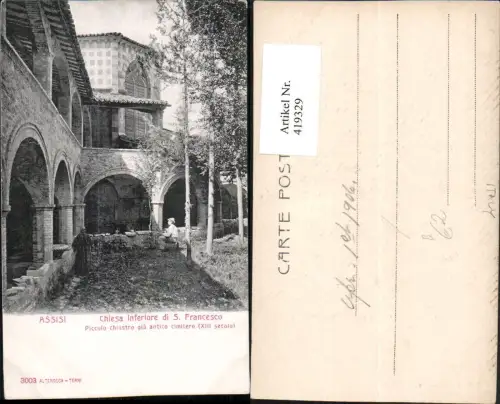 ASSISI Chiesa inferiore di S. Francesco
Piccolo chiostro già antico cimitero (XIII secolo)
3003
TERNI
Artikel Nr.
419329
CARTE POST
1st 1904
62